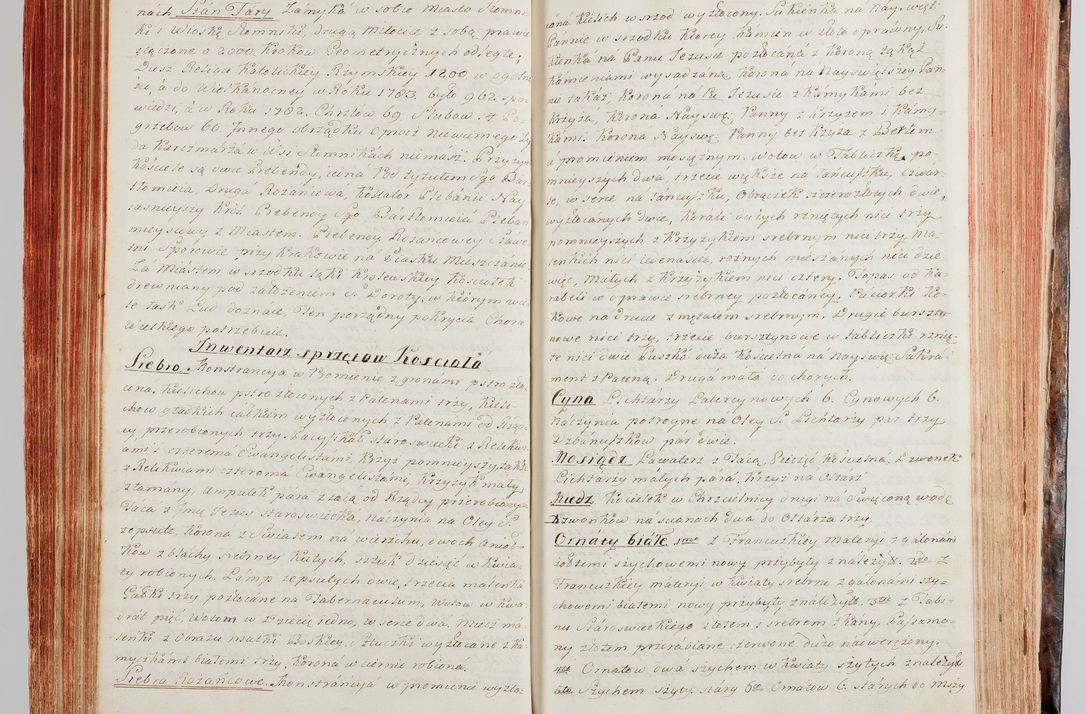 nách Stán Táry Zamyka w sobie miasto Słomni
ki i Wioskę Słomniki, drugą miłocice z sobą prawie
złączone o 2000 kroków Geometrycznych odległe;
Dusz Religii Katolickiey Rzymskiey 1800 w ogólno
ści, a do Wielkanocney w Roku 1783. było 962. spo
wiedzi, á w Roku 1782. Chrztow 69 Slubow 14 Po
grzebow 60. Innego obrządku oprocz niewiernego Zy
da karczmarza w Wsi Słomnikach niemász. Przy tym
kościele są dwie Prebendy, iedna Pod tytułem Sgo Bar
tłomieia, Druga Rożańcowa, kollator Plebanii Nay
iasnieyszy król. Prebendy Sgo Bartłomieia Pleban
mieyscowy z Miastem. Prebendy Rożańcowey Sławe
tni Społowie przy krakowie na Piasku Mieszczánie.
Zá Miastem w srzodku łąki Krolewskiey Kościołek
drewniany pod założeniem S. Doroty, w którym wie
le łask Lud doznáie. Ten porządny pokrycia Choru
Wielkiego potrzebuie.
Inwentarz sprzętow kościołá
Srebro. Monstrancya w Promienie z gronami pstro zło
cona, kielichow pstro złoconych z Patenami trzy, kieli
chow gładkich całkiem wyzłoconych z Patenami od Rząd
cy przerobionych trzy. Pacyfikał staroswiecki z Relikwi
ami i czterema Ewangelistami, krzyż pomnieyszy także
z Relikwiami czterema Ewangelistami, krzyżyk mały
złamany, Ampułek pára z tacą od Rządcy przerobionych
Taca z Imie Jezus staroswiecka, náczynia na Oley S.
zepsute, korona z Swiatem na wierzchu, dwoch Anioł
kow z blachy srebrney kutych, sztuk dziesięć w kwia
ty robionych. Lamp zepsutych dwie, trzecia malenka
Gałki trzy pozłocane na Tabernaculum, Wotow w kwa
drat pięć, Wotem w Dziecię iedno, w serce dwa, miecz má
lenki z Obrazu matki Boskiey, Sztuczki wyzłacane z ka
myczkámi białemi trzy, korona w ciernie robiona.
Srebra Rożańcowe. Monstráncya w promienie wyzło
cona kielich w srzod wyzłocony. Sukienka na Nayswięt:
Pannie w srzodku ktorey kámien w złoto oprawny, Su
kienka na Panu Jezusie pozłacaná z koroną także
kámieniami wysadzaną, korona na Nayswiętszey Pan
nie takaż, koroná na Pa: Jezusie z kámykami bez
krzyża, korona Nayswię: Panny z krzyżem i kámy
kámi. korona Nayswię: Panny bez krzyża z Betlem
á promieniem mosiężnym. Wotow w Tabliczkę po
mnieyszych dwá, trzecie większe na łáncuszku, czwar
te, w serce na łáncuszku, Obrączek szczerozłotych dwie,
wyzłacanych dwie, korali dużych rzniętych nici trzy
pomnieyszych z krzyżykiem srebrnym nici trzy má
lenkich nici dwanascie, roznych mieszanych nici dzie
więc, małych z krzyżykiem nici cztery. Topas od ka
rabeli w oprawie srebrney pozłocáney. Paciorki ko
kowe na drucie z mętalem srebrnym, Drugie burszty
nowe nici trzy, trzecie bursztynowe w tabliczki rznię
te nici dwie Puszka duża kościelna na Nayswię: Sakra
ment z Pateną. Druga mała do chorych.
Cyna Lichtarzy Latercynowych 6. Cynowych 6.
Naczynia potroyne na Oley S. Lichtarzy par trzy
Dzbanuszkow par dwie.
Mosiądz Lawaterz z Tacą, Pieczęć kościelna, Dzwonek
Lichtarzy małych pára, krzyż na Ołtarz
Miedz Kociełek w Chrzcielnicy drugi na Swięconą wodę
Dzwonkow na scianach dwa do Ołtarza trzy
Ornáty białe 1mo z Francuzkiey materyi z galonami
żołtemi szychowemi nowy przybyły znależyt. 2do z
Francuzkiey materyi w kwiaty srebrne z galonami szy
chowemi białemi nowy przybyły znależyt. 3tio z Tabi
nu Stároswieckiego złotem i srebrem tkány, báysamo
ny złotem przerabiane czerwone dużo nádwerężony.
4to Ornatow dwá szychem w kwiaty szytych znależyt
5to Szychem szyty stary 6to Ornatow 6. stárych do mszy